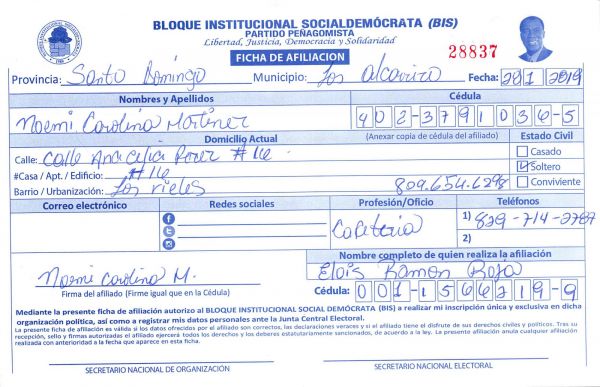 BLOQUE INSTITUCIONAL SOCIALDEMÓCRATA (BIS)
PARTIDO PEÑAGOMISTA
Libertad, Justicia, Democracia y Solidaridad
FICHA DE AFILIACION
28837
Provincia: Santo Domingo Municipio: Los Fecha: 2019
Nombres y Apellidos Cédula
Noemi Carolina Martinez 402-3791036-5
Domicilio Actual (Anexar copia de cédula del afiliado) Estado Civil
Calle: Calle #16 Casado
#Casa / Apt. / Edificio: #16 Soltero
Barrio / Urbanización: Los rieles 809.654.6298 Conviviente
Correo electrónico Redes sociales Profesión/Oficio Teléfonos
Cafeteria 1) 829-714-2787
2)
Nombre completo de quien realiza la afiliación
Noemi Carolina M. Ramon
Firma del afiliado (Firme igual que en la Cédula) Cédula: 001-1566219-9
Mediante la presente ficha de afiliación autorizo al BLOQUE INSTITUCIONAL SOCIAL DEMÓCRATA (BIS) a realizar mi inscripción única y exclusiva en dicha
organización política, así como a registrar mis datos personales ante la Junta Central Electoral.
La presente ficha de afiliación es válida si los datos ofrecidos por el afiliado son correctos, las declaraciones veraces y si el afiliado tiene el disfrute de sus derechos civiles y políticos. Tras su
recepción, sello y firmas autorizadas el afiliado ejercerá todos los derechos y los deberes estatutariamente sancionados, de acuerdo a la ley. La presente afiliación anula cualquier afiliación
realizada con anterioridad a la fecha que aparece en esta ficha.
SECRETARIO NACIONAL DE ORGANIZACIÓN SECRETARIO NACIONAL ELECTORAL